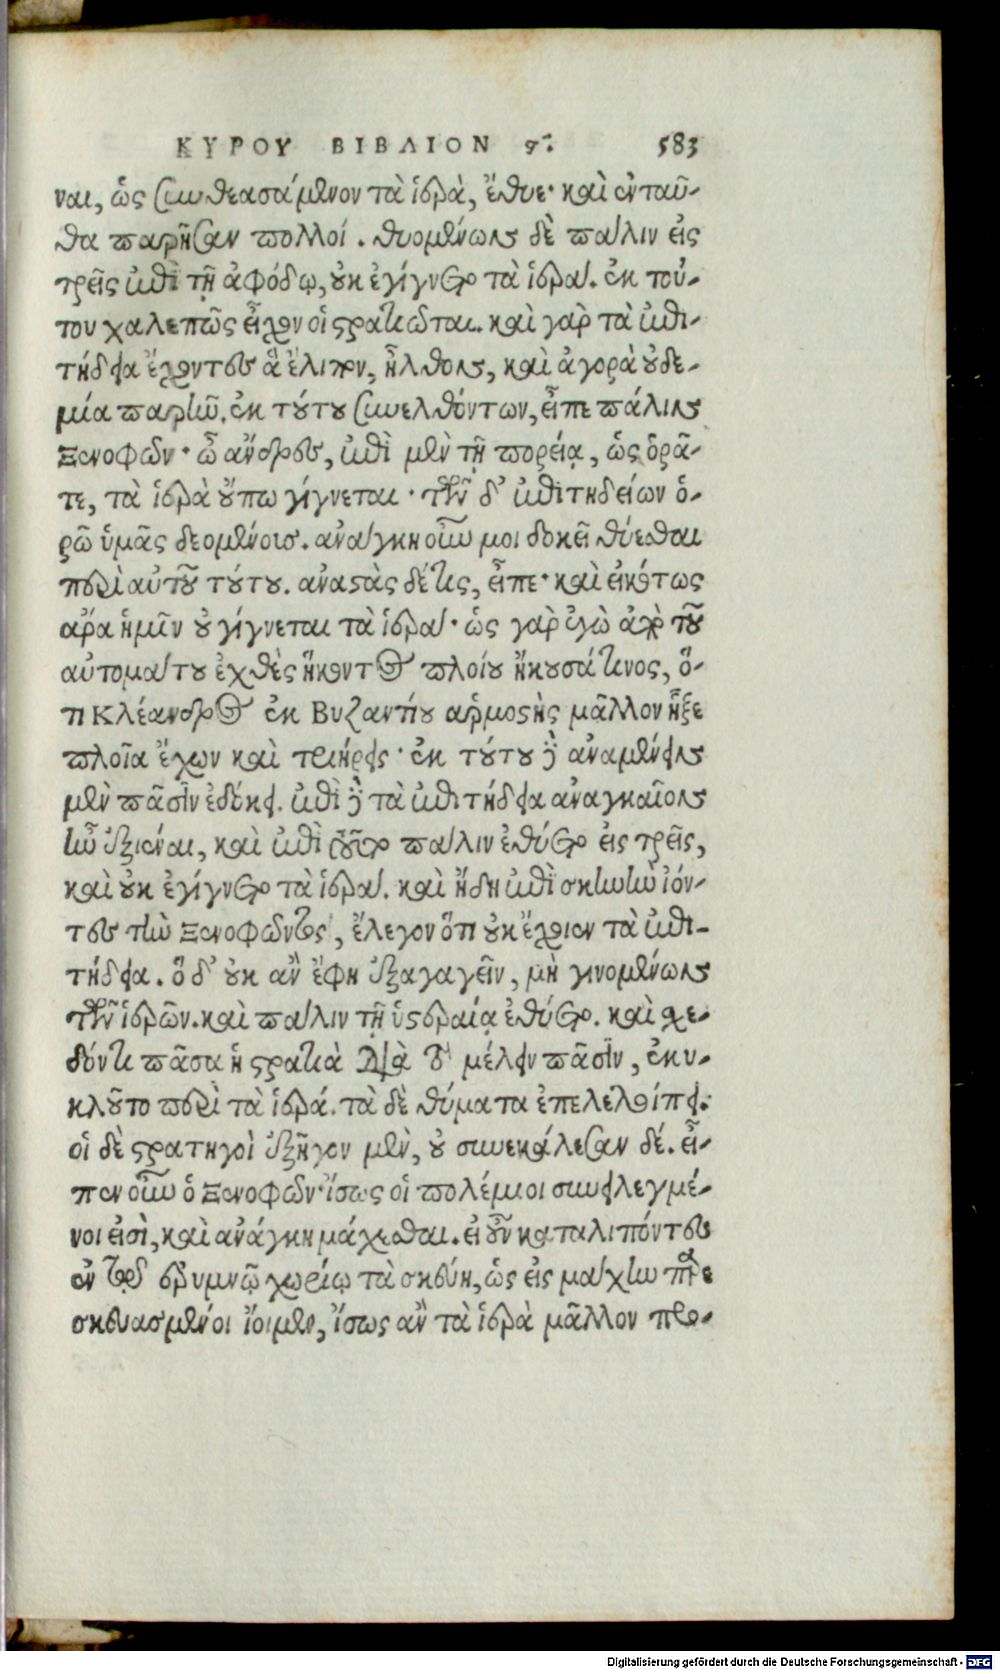 ΚΥΡΟΥ ΒΙΒΛΙΟΝ ϛ. 583
ναι, ὡς συνθεασάμενον τὰ ἱερὰ, ἔθυε· καὶ ἐνταῦ-
θα παρῆσαν πολλοί. θυομένων δὲ πάλιν εἰς
τρεῖς ἐπὶ τῇ ἀφόδῳ, οὐκ ἐγίγνετο τὰ ἱερά. ἐκ τού-
του χαλεπῶς εἶχον οἱ στρατιῶται. καὶ γὰρ τὰ ἐπι-
τήδεια ἔχοντες ἃ ἔλιπον, ἦλθον, καὶ ἀγορὰ οὐδε-
μία παρῆν. ἐκ τούτου συνελθόντων, εἶπε πάλιν
Ξενοφῶν· ὦ ἄνδρες, ἐπὶ μὲν τῇ πορείᾳ, ὡς ὁρᾶ-
τε, τὰ ἱερὰ οὔπω γίγνεται· τῶν δ' ἐπιτηδείων ὁ-
ρῶ ὑμᾶς δεομένους. ἀνάγκη οὖν μοι δοκεῖ θύεσθαι
περὶ αὐτοῦ τούτου. ἀναστὰς δέ τις, εἶπε· καὶ εἰκότως
ἄρα ἡμῖν οὐ γίγνεται τὰ ἱερά· ὡς γὰρ ἐγὼ ἀπὸ τοῦ
αὐτομάτου ἐχθὲς ἥκοντος πλοίου ἤκουσά τινος, ὅ-
τι Κλέανδρος ἐκ Βυζαντίου ἁρμοστὴς μᾶλλον ἦξε
πλοῖα ἔχων καὶ τριήρεις· ἐκ τούτου δὲ ἀναμένειν
μὲν πᾶσιν ἐδόκει. ἐπὶ δὲ τὰ ἐπιτήδεια ἀναγκαῖον
ἦν ἐξιέναι, καὶ ἐπὶ τοῦτο πάλιν ἐθύετο εἰς τρεῖς,
καὶ οὐκ ἐγίγνετο τὰ ἱερά. καὶ ἤδη ἐπὶ σκηνὴν ἰόν-
τες τὴν Ξενοφῶντος, ἔλεγον ὅτι οὐκ ἔχοιεν τὰ ἐπι-
τήδεια. ὃ δ' οὐκ ἂν ἔφη ἐξαγαγεῖν, μὴ γινομένων
τῶν ἱερῶν. καὶ πάλιν τῇ ὑστεραίᾳ ἐθύετο. καὶ σχε-
δόν τι πᾶσα ἡ στρατιὰ διὰ τὸ μέλειν πᾶσιν, ἐκυ-
κλοῦτο περὶ τὰ ἱερά. τὰ δὲ θύματα ἐπελελοίπει·
οἱ δὲ στρατηγοὶ ἐξῆγον μὲν, οὐ συνεκάλεσαν δέ. εἶ-
πεν οὖν ὁ Ξενοφῶν· ἴσως οἱ πολέμιοι συνειλεγμέ-
νοι εἰσὶ, καὶ ἀνάγκη μάχεσθαι. εἰ οὖν καταλιπόντες
ἐν τῷ ἐρυμνῷ χωρίῳ τὰ σκεύη, ὡς εἰς μάχην παρε
σκευασμένοι ἴοιμεν, ἴσως ἂν τὰ ἱερὰ μᾶλλον προ-
Digitalisierung gefördert durch die Deutsche Forschungsgemeinschaft - DFG